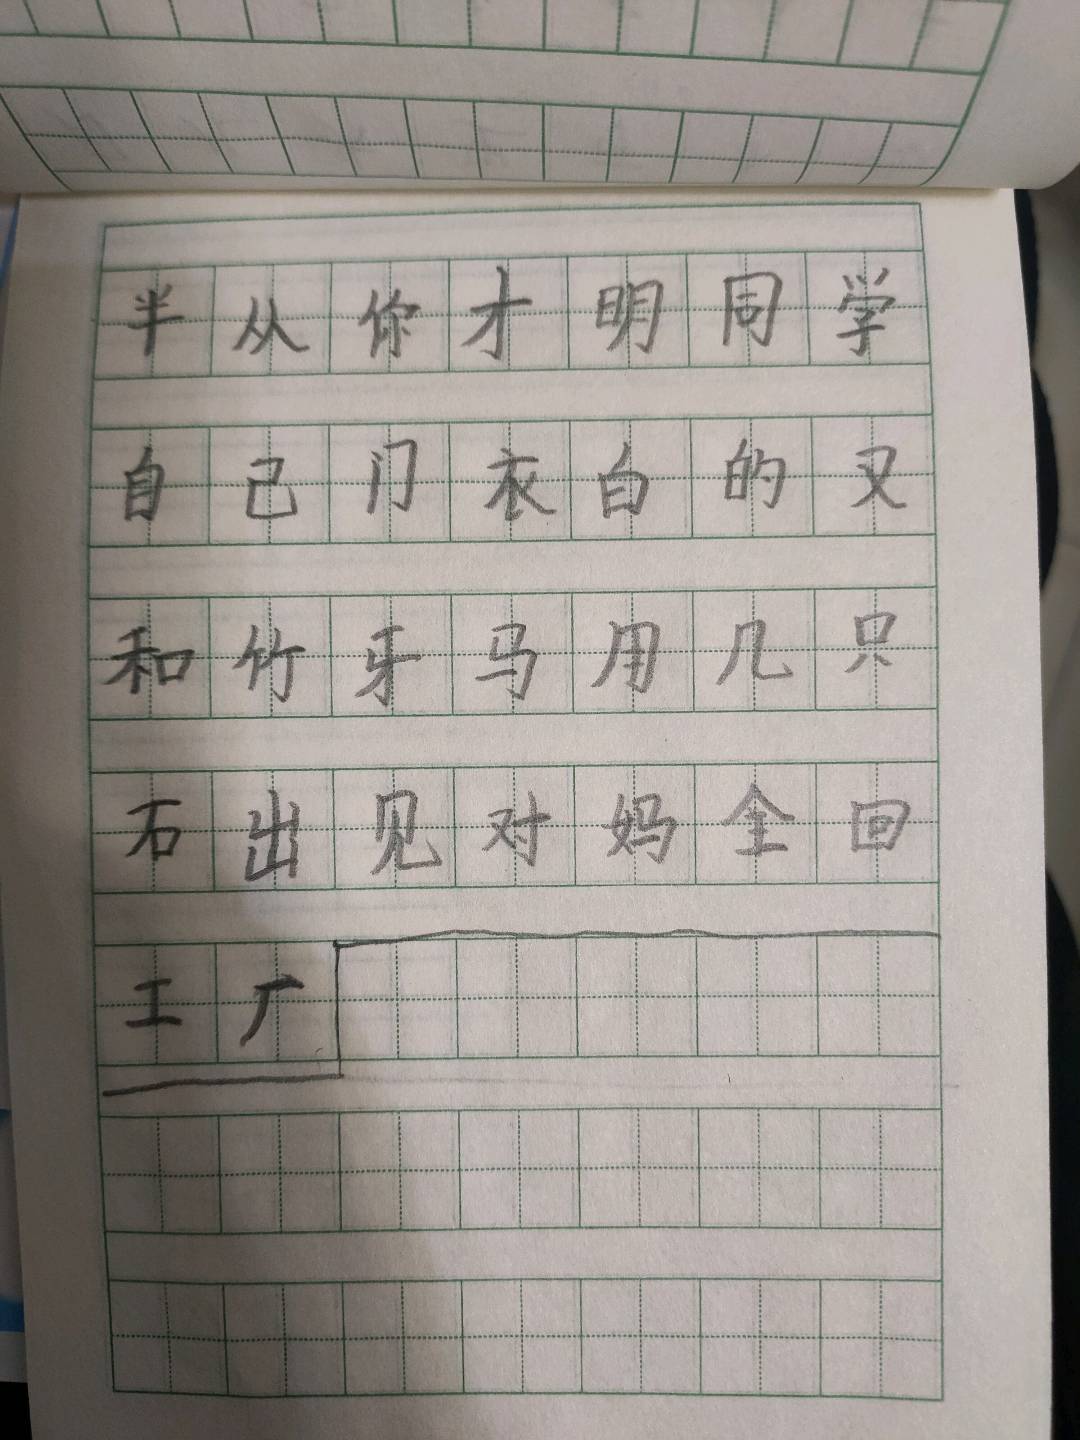 半从你才明同学
自己门衣白的又
和竹牙马用几只
石出见对妈全回
工厂